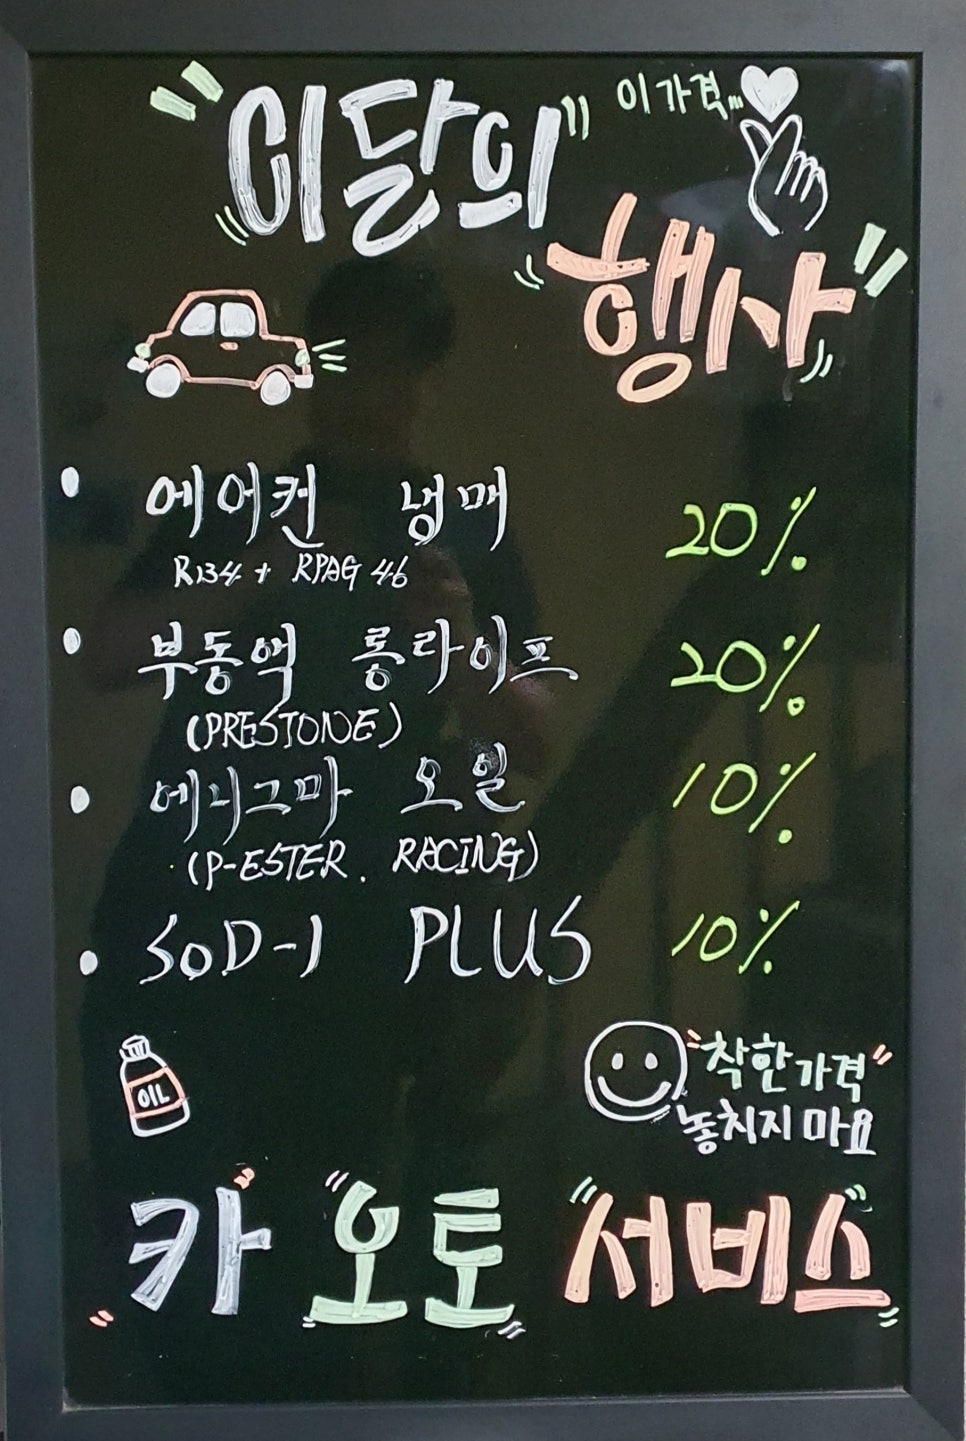 이달의 이 가격...
행사
에어컨 냉매 20%
R134 + RPAG 46
부동액 롱라이프 20%
(PRESTONE)
에니그마 오일 10%
(P-ESTER. RACING)
SOD-1 PLUS 10%
OIL
"착한가격"
놓치지 마요
카 오토 서비스